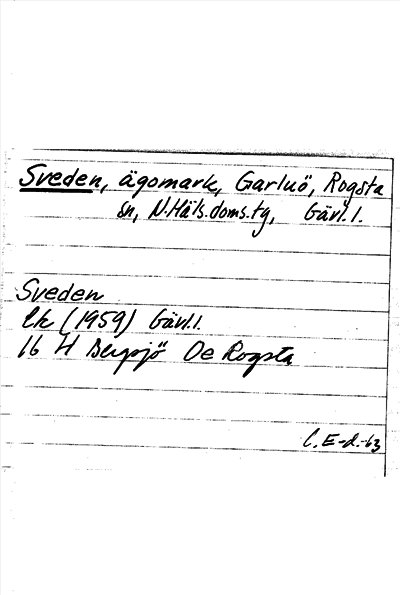 Sveden, ägomark, Garluö, Rogsta
sn, N.Häls.doms.tg, Gävl.l.
Sveden
Ek (1959) Gävl.l.
16 H Bergsjö De Rogsta
C.E-d.-63